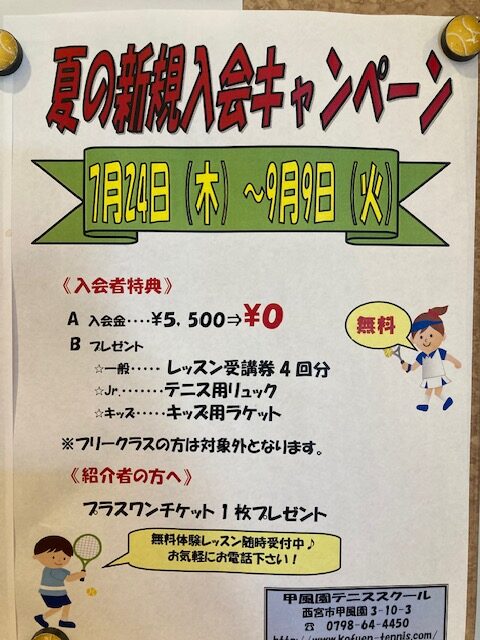 夏の新規入会キャンペーン
7月24日（木）～9月9日（火）
《入会者特典》
A 入会金‥‥¥5,500⇒¥0
無料
B プレゼント
☆一般‥‥‥レッスン受講券４回分
☆Jr.‥‥‥‥テニス用リュック
☆キッズ‥‥‥キッズ用ラケット
※フリークラスの方は対象外となります。
《紹介者の方へ》
プラスワンチケット１枚プレゼント
無料体験レッスン随時受付中♪
お気軽にお電話下さい！
甲風園テニススクール
西宮市甲風園3-10-3
☎ 0798-64-4450
http://www.kofuen-tennis.com/